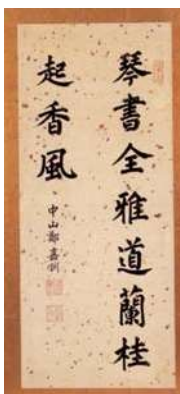 琴書全雅道蘭桂
起香風
中山鄭嘉訓